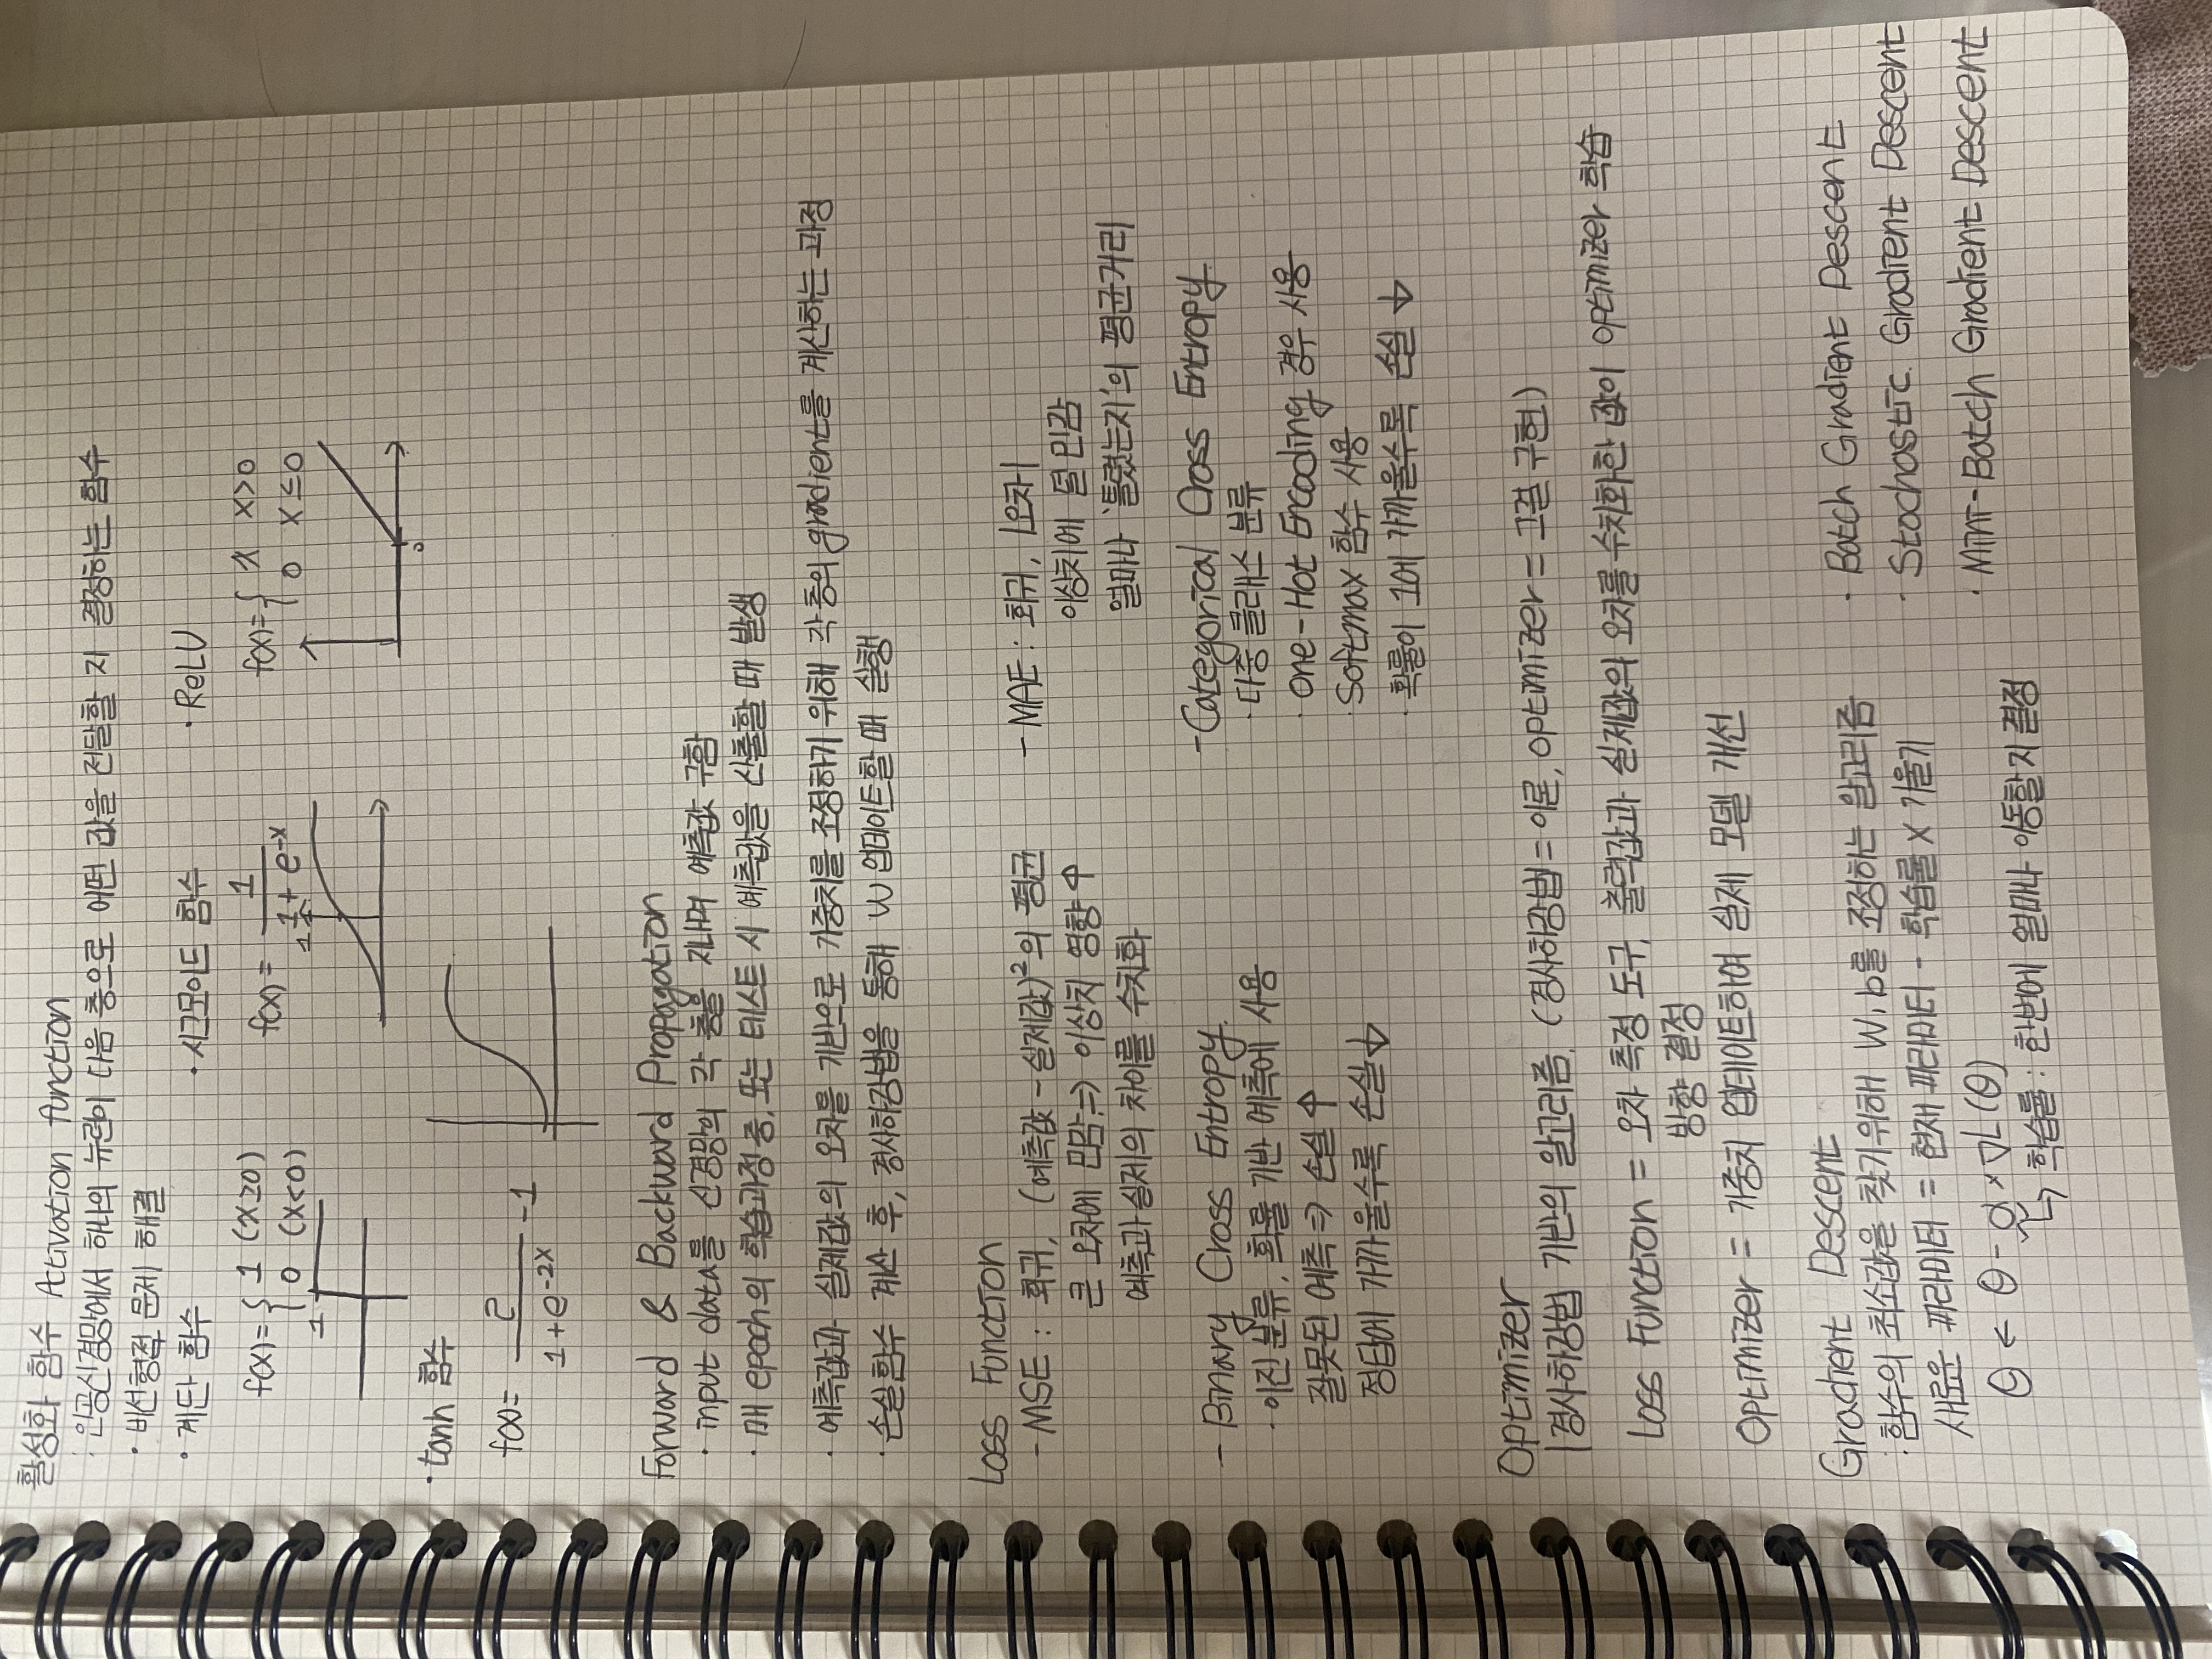 활성화 함수 Activation function
: 인공신경망에서 하나의 뉴런이 다음 층으로 어떤 값을 전달할 지 결정하는 함수
· 비선형적 문제 해결
· 계단 함수
f(x)= { 1 (x≥0)
0 (x<0)
1
· 시그모이드 함수
f(x) = 1 / (1 + e^-x)
1
· ReLU
f(x)= { x x>0
0 x≤0
0
· tanh 함수
f(x)= 2 / (1+e^-2x) -1
Forward & Backward Propagation
· input data를 신경망의 각 층을 지나며 예측값 구함
· 매 epoch의 학습과정 중, 또는 테스트 시 예측값을 산출할 때 발생
· 예측값과 실제값의 오차를 기반으로 가중치를 조정하기 위해 각 층의 gradient를 계산하는 과정
· 손실함수 계산 후, 경사하강법을 통해 W 업데이트할 때 실행
Loss Function
- MSE : 회귀, (예측값 - 실제값)²의 평균
큰 오차에 민감 ⇒ 이상치 영향 ↑
예측과 실제의 차이를 수치화
- MAE : 회귀, |오차|
이상치에 덜 민감
얼마나 '틀렸는지'의 평균거리
- Binary Cross Entropy.
· 이진 분류, 확률 기반 예측에 사용
잘못된 예측 ⇒ 손실 ↑
정답에 가까울수록 손실 ↓
- Categorical Cross Entropy
· 다중 클래스 분류
· One-Hot Encoding 경우 사용
· Softmax 함수 사용
· 확률이 1에 가까울수록 손실 ↓
Optimizer
| 경사하강법 기반의 알고리즘. (경사하강법 = 이론, optimizer = 그걸 구현)
Loss Function = 오차 측정 도구, 출력값과 실제값의 오차를 수치화한 값이 optimizer 학습
방향 결정
Optimizer = 가중치 업데이트하여 실제 모델 개선
Gradient Descent
: 함수의 최소값을 찾기위해 W, b를 조정하는 알고리즘
새로운 파라미터 = 현재 파라미터 - 학습률 × 기울기
θ ← θ - α × ∇L(θ)
↳ 학습률 : 한번에 얼마나 이동할지 결정
· Batch Gradient Descent
· Stochastic Gradient Descent
· Mini-Batch Gradient Descent